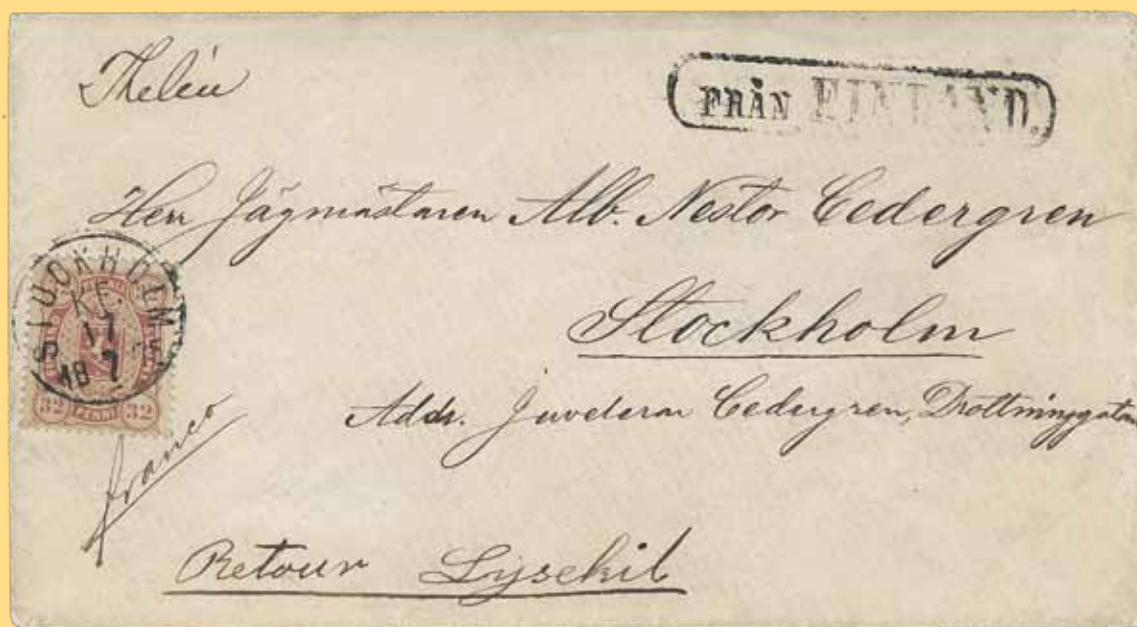 Thelin
FRÅN FINLAND.
Herr Jägmästaren Alb. Nestor Cedergren
Stockholm
Addr. Juveleraren Cedergren, Drottninggatan
STOCKHOLM
KE.
17
7
32 PENNI 32
franco
Retour Lysekil